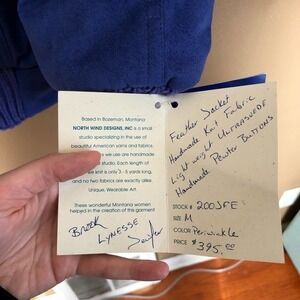 Based in Bozeman, Montana
NORTH WIND DESIGNS, INC is a small
studio specializing in the use of
beautiful American yarns and fabrics.
s we use are handmade
studio. Each length of
knit is only 3 - 5 yards long,
and no two fabrics are exactly alike.
Unique, Wearable Art.
These wonderful Montana women
helped in the creation of this garment
Brook
Lynesse
Feather Jacket
Handmade Knit Fabric
Light weight ULTRASUEDE
Handmade Pewter BUTTONS
STOCK # 200JFE
SIZE M
COLOR Periwinkle
PRICE $395.00